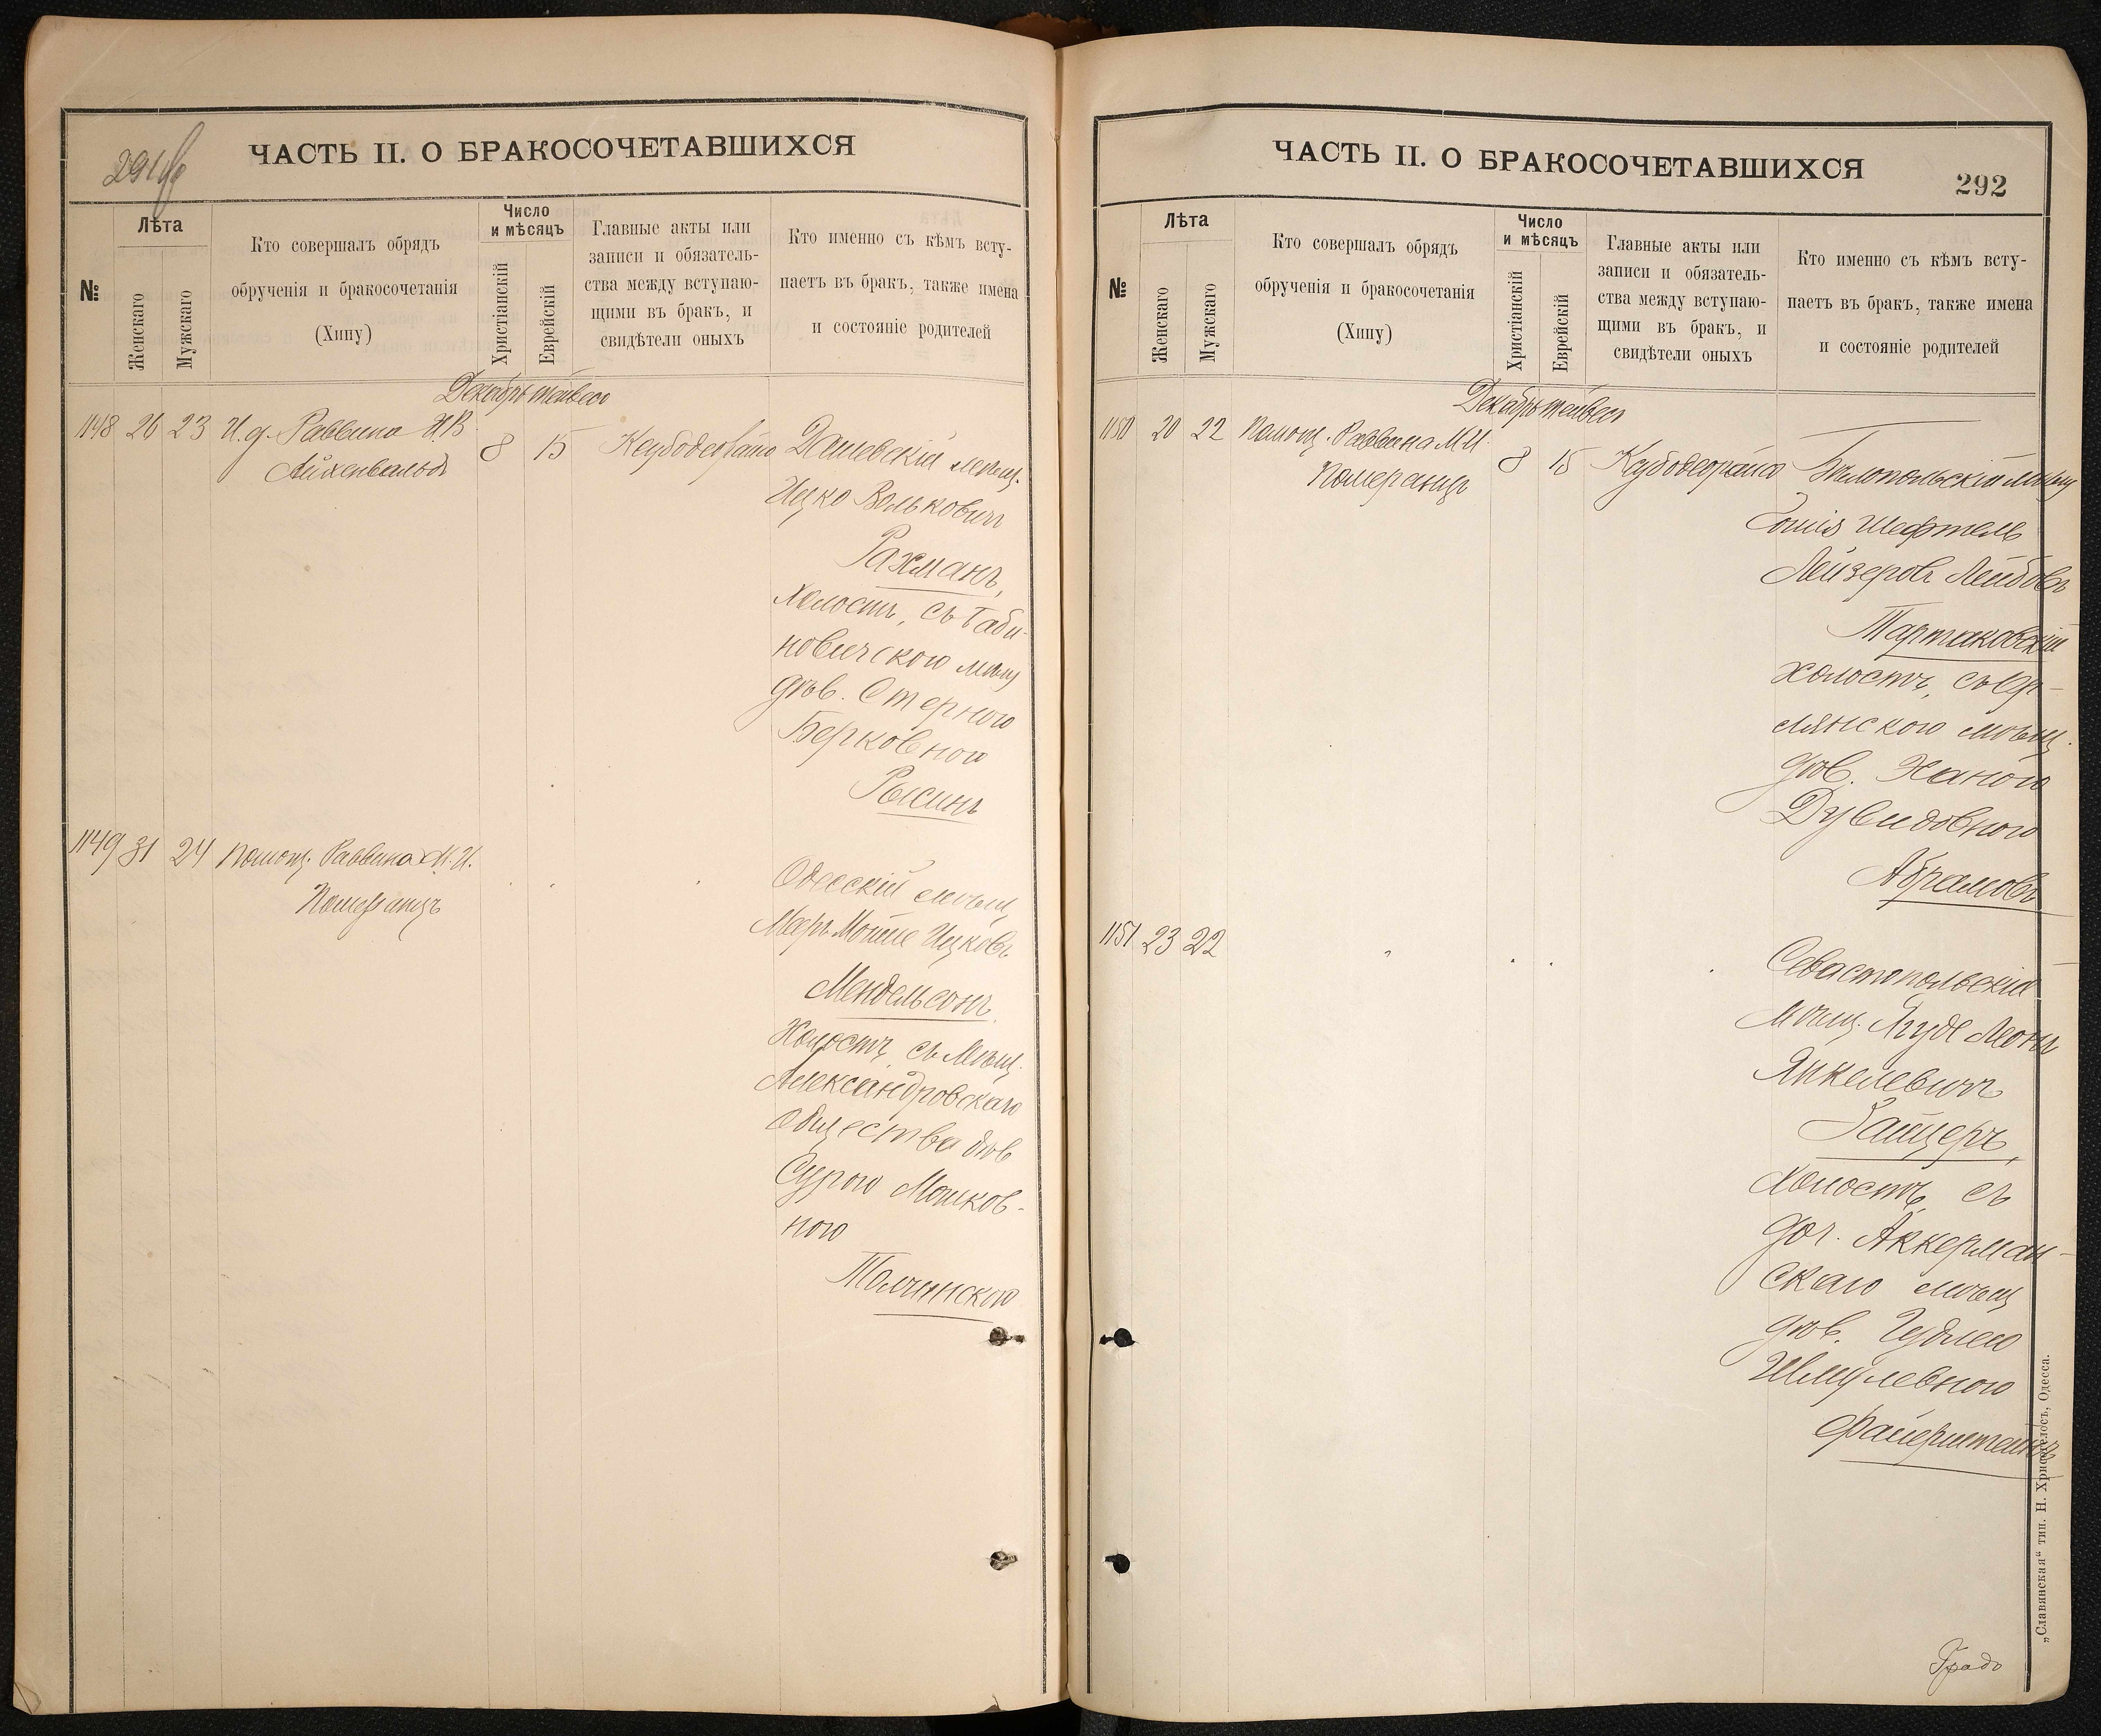 291
ЧАСТЬ II. О БРАКОСОЧЕТАВШИХСЯ
№
Лѣта
Женскаго
Мужскаго
Кто совершалъ обрядъ
обрученія и бракосочетанія
(Хипу)
Число
и мѣсяцъ
Христіанскій
Еврейскій
Главные акты или
записи и обязатель-
ства между вступаю-
щими въ бракъ, и
свидѣтели оныхъ
Кто именно съ кѣмъ всту-
паетъ въ бракъ, также имена
и состояніе родителей
Декабрь тейвесъ
1148 26 23 И. д. Раввина
Айхенвальдъ
8 15
Дашевскій мѣщ.
Ицко Вольковичъ
Рахманъ,
Холостъ, съ Баби-
новичскою мѣщ
дѣв. Стерною
Берковною
Рысинъ
1149 31 24 Помощ. Раввина М. И.
Померанцъ
Одесскій мѣщ
Меръ Мойше Ицковъ
Мендельсонъ.
Холостъ съ Мѣщ.
Александровскаго
Общества дѣв
Сурою Мошков-
ною
Толчинскою
ЧАСТЬ II. О БРАКОСОЧЕТАВШИХСЯ
292
№
Лѣта
Женскаго
Мужскаго
Кто совершалъ обрядъ
обрученія и бракосочетанія
(Хипу)
Число
и мѣсяцъ
Христіанскій
Еврейскій
Главные акты или
записи и обязатель-
ства между вступаю-
щими въ бракъ, и
свидѣтели оныхъ
Кто именно съ кѣмъ всту-
паетъ въ бракъ, также имена
и состояніе родителей
Декабрь тейвесъ
1150 20 22 Помощ. Раввина М И.
Померанцъ
8 15
Бѣлопольскій мѣщ
Шефтель
Лейзеровъ Лейбовъ
Тартаковскій
холостъ, съ Ор-
лянскою мѣщ.
дѣв. Ханою
Дувидовною
Абрамовъ
1151 23 22
Севастопольскій
мѣщ. Ягуде Леонъ
Янкелевичъ
Зайцеръ,
Холостъ, съ
доч. Аккерман-
скаго мѣщ
дѣв. Гудлею
Шмулевною
Файерштейнъ
„Славянская“ тип. Н. Хрисогелосъ, Одесса.